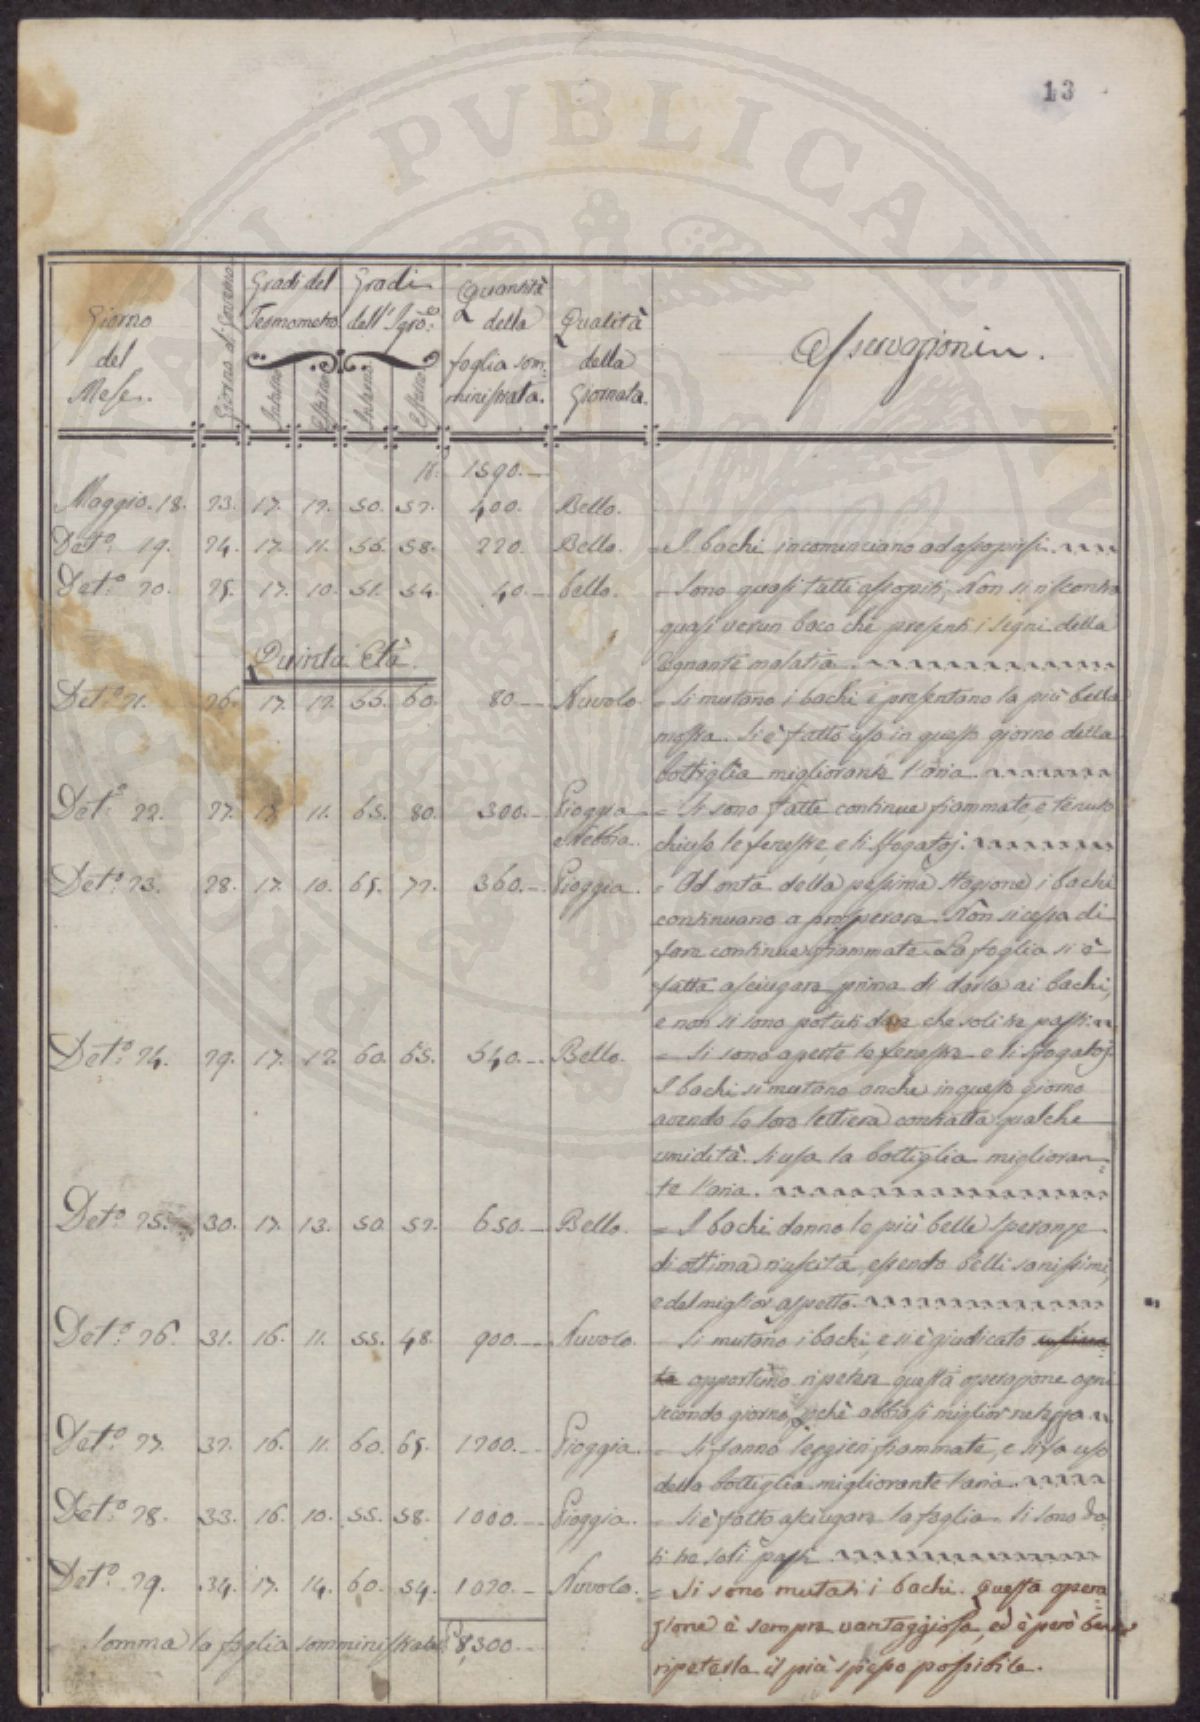 13
Giorno del Mese.
Giorno di Governo
Gradi del Termometro
Interno
Esterno
Gradi dell'Igro.o
Interno
Esterno
Quantità della foglia somministrata.
Qualità della Giornata.
Osservazioni.
1590.
Maggio. 18. 23. 17. 12. 50. 52. 400. Bello.
Det.o 19. 24. 17. 11. 56. 58. 220. Bello. = I bachi incominciano ad assopirsi.
Det.o 20. 25. 17. 10. 51. 54. 40. bello. = Sono quasi tutti assopiti, Non si riscontra
quasi verun baco che presenti i segni della
regnante malatia.
Quinta Età.
Det.o 21. 26. 17. 12. 55. 60. 80. Nuvolo. = Si mutano i bachi e presentano la più bella
mostra. Si è fatto uso in questo giorno della
bottiglia migliorante l'aria.
Det.o 22. 27. 17. 11. 65. 80. 300. Pioggia = Si sono fatte continue fiammate, e tenuto
e Nebbia. chiuso le fenestre, e li sfogatoj.
Det.o 23. 28. 17. 10. 65. 72. 360. Pioggia. = Ad onta della pessima stagione i bachi
continuano a prosperare. Non si cessa di
fare continue fiammate. La foglia si è
fatta asciugare prima di darla ai bachi,
e non si sono potuti dare che soli tre pasti.
Det.o 24. 29. 17. 12. 60. 65. 540. Bello. = Si sono aperte le fenestre e li sfogatoj.
I bachi si mutano anche in questo giorno
avendo la loro lettiera contratta qualche
umidità. Si usa la bottiglia milglioran-
te l'aria.
Det.o 25. 30. 17. 13. 50. 52. 650. Bello. = I bachi danno le più belle speranze
di ottima riuscita, essendo belli sanissimi,
e del miglior aspetto.
Det.o 26. 31. 16. 11. 55. 48. 900. Nuvolo. = Si mutano i bachi, e si è giudicato
opportuno ripetere questa operazione ogni
secondo giorno, pchè abbiasi miglior netezza.
Det.o 27. 32. 16. 11. 60. 65. 1200. Pioggia. = Si fanno leggieri fiammate, e si fa uso
della bottiglia migliorante l'aria.
Det.o 28. 33. 16. 10. 55. 58. 1000. Pioggia. = Si è fatto asciugare la foglia. Si sono da-
ti tre soli pasti
Det.o 29. 34. 17. 14. 60. 54. 1020. Nuvolo. = Si sono mutati i bachi. Questa opera-
zione è sempre vantaggiosa, ed è però bene
Somma la foglia somministrata 8,300
ripeterla il più spesso possibile.